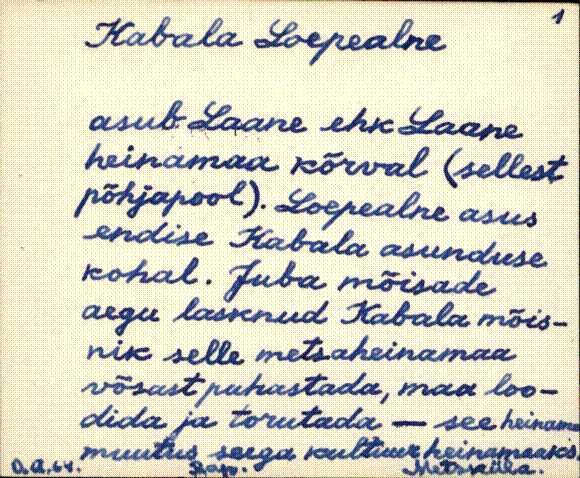 1
Kabala Loepealne
asub Laane ehk Laane
heinamaa kõrval (sellest
põhjapool). Loepealne asus
endise Kabala asunduse
kohal. Juba mõisade
aegu lasknud Kabala mõis-
nik selle metsaheinamaa
võsast puhastada, maa loo-
dida ja torutada — see heinama
muutus seega kultuurheinamaaks.
D.A.64. Rap. Metsküla.